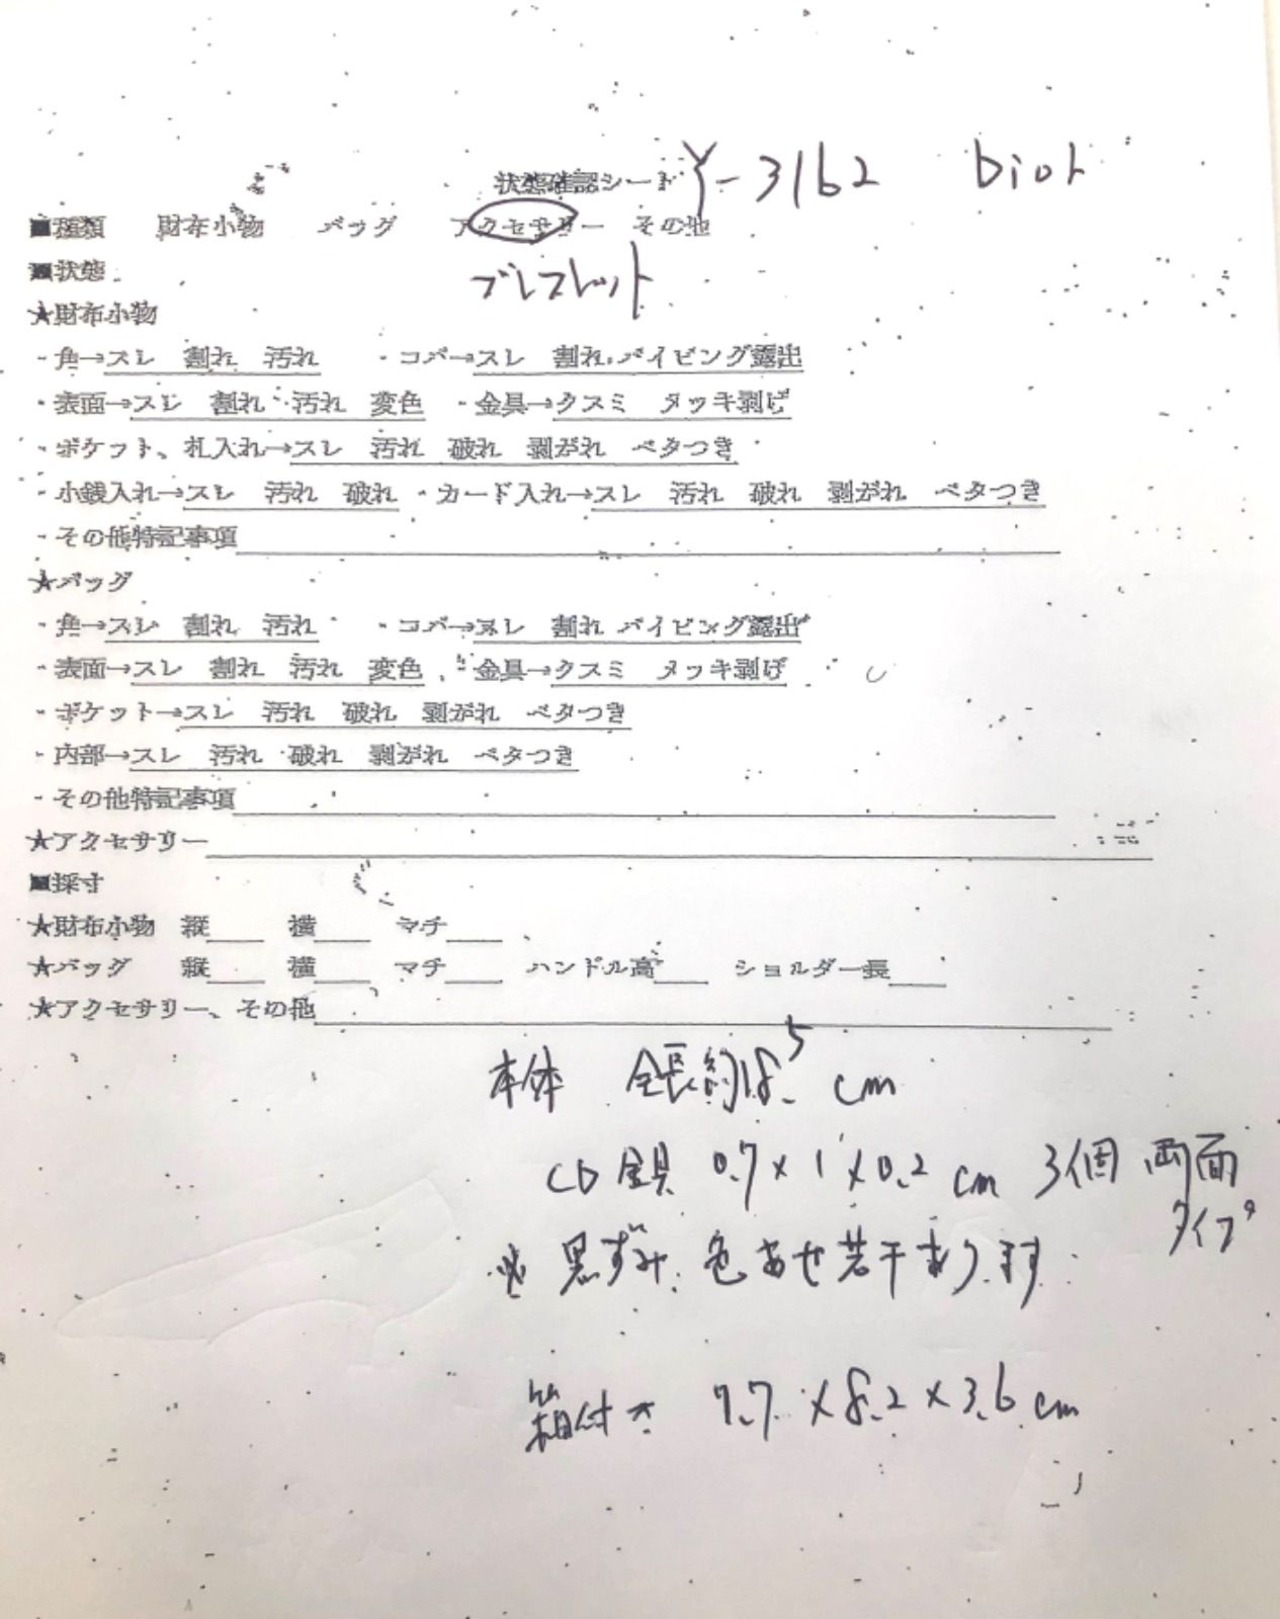 状態確認シート Y-3162 Dior
■種類 財布小物 バッグ アクセサリー その他
■状態 ブレスレット
★財布小物
・角→スレ 割れ 汚れ ・コバ→スレ 割れ パイピング露出
・表面→スレ 割れ 汚れ 変色 ・金具→クスミ メッキ剥げ
・ポケット、札入れ→スレ 汚れ 破れ 剥がれ ベタつき
・小銭入れ→スレ 汚れ 破れ ・カード入れ→スレ 汚れ 破れ 剥がれ ベタつき
・その他特記事項
★バッグ
・角→スレ 割れ 汚れ ・コバ→スレ 割れ パイピング露出
・表面→スレ 割れ 汚れ 変色 ・金具→クスミ メッキ剥げ
・ポケット→スレ 汚れ 破れ 剥がれ ベタつき
・内部→スレ 汚れ 破れ 剥がれ ベタつき
・その他特記事項
★アクセサリー
■採寸
★財布小物 縦 横 マチ
★バッグ 縦 横 マチ ハンドル高 ショルダー長
★アクセサリー、その他
本体 全長約18.5cm
CD金具 0.7×1×0.2cm 3個 両面
タイプ
※黒ずみ、色あせ若干あります
箱付き 7.7×8.2×3.6cm